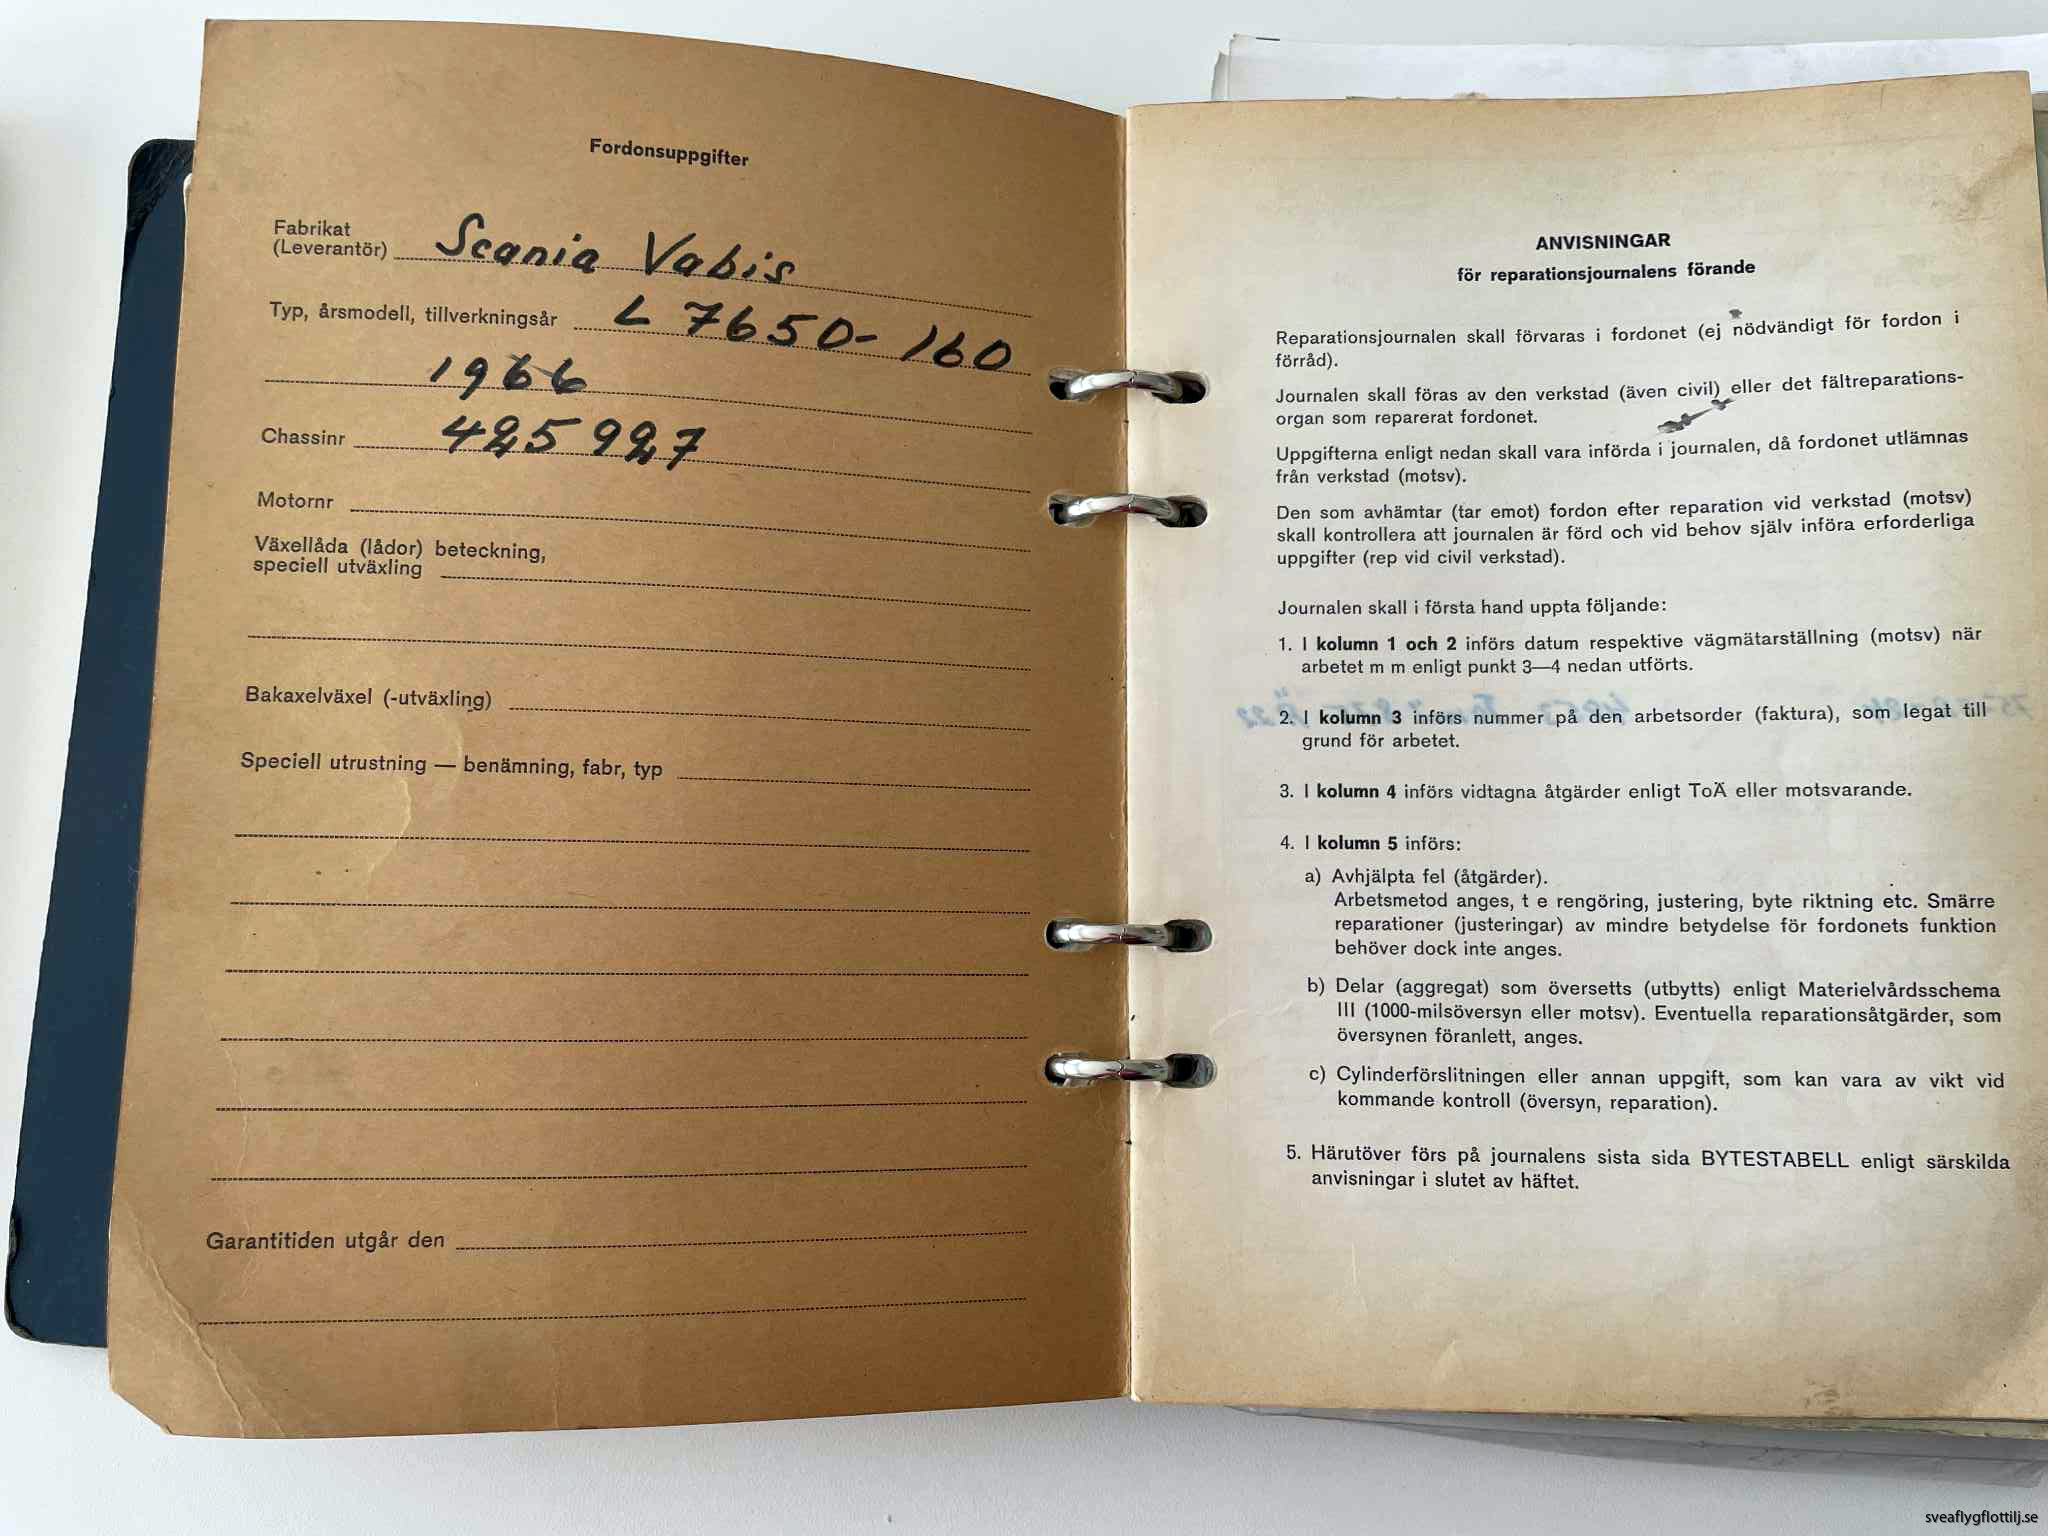 Fordonsuppgifter
Fabrikat
(Leverantör) Scania Vabis
Typ, årsmodell, tillverkningsår L 7650-160
1966
Chassinr 425927
Motornr
Växellåda (lådor) beteckning,
speciell utväxling
Bakaxelväxel (-utväxling)
Speciell utrustning — benämning, fabr, typ
Garantitiden utgår den
ANVISNINGAR
för reparationsjournalens förande
Reparationsjournalen skall förvaras i fordonet (ej nödvändigt för fordon i
förråd).
Journalen skall föras av den verkstad (även civil) eller det fältreparations-
organ som reparerat fordonet.
Uppgifterna enligt nedan skall vara införda i journalen, då fordonet utlämnas
från verkstad (motsv).
Den som avhämtar (tar emot) fordon efter reparation vid verkstad (motsv)
skall kontrollera att journalen är förd och vid behov själv införa erforderliga
uppgifter (rep vid civil verkstad).
Journalen skall i första hand uppta följande:
1. I kolumn 1 och 2 införs datum respektive vägmätarställning (motsv) när
arbetet m m enligt punkt 3—4 nedan utförts.
2. I kolumn 3 införs nummer på den arbetsorder (faktura), som legat till
grund för arbetet.
3. I kolumn 4 införs vidtagna åtgärder enligt ToÄ eller motsvarande.
4. I kolumn 5 införs:
a) Avhjälpta fel (åtgärder).
Arbetsmetod anges, t e rengöring, justering, byte riktning etc. Smärre
reparationer (justeringar) av mindre betydelse för fordonets funktion
behöver dock inte anges.
b) Delar (aggregat) som översetts (utbytts) enligt Materielvårdsschema
III (1000-milsöversyn eller motsv). Eventuella reparationsåtgärder, som
översynen föranlett, anges.
c) Cylinderförslitningen eller annan uppgift, som kan vara av vikt vid
kommande kontroll (översyn, reparation).
5. Härutöver förs på journalens sista sida BYTESTABELL enligt särskilda
anvisningar i slutet av häftet.
sveaflygflottilj.se